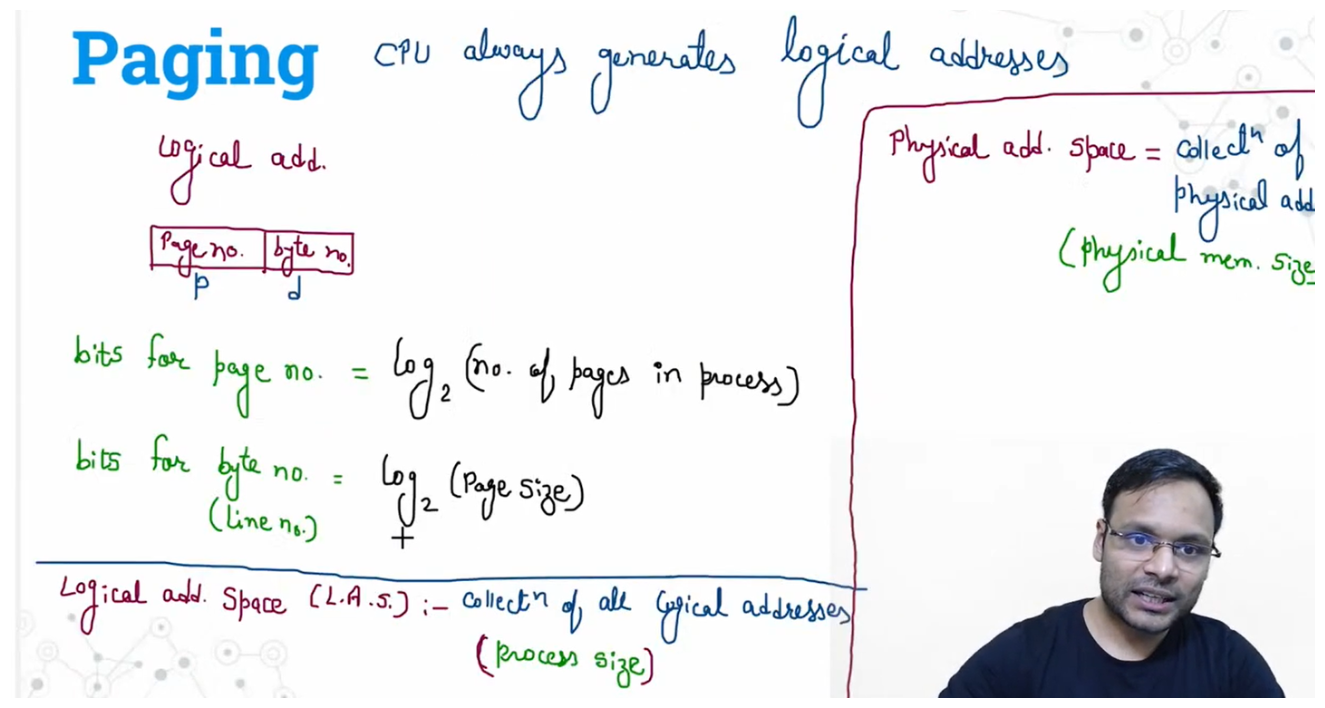 Paging CPU always generates logical addresses
Logical add.
Page no. byte no.
p d
bits for page no. = log₂ (no. of pages in process)
bits for byte no. = log₂ (Page size)
(line no.) +
Logical add. Space (L.A.S.) :- collectⁿ of all logical addresses
(process size)
Physical add. space = collectⁿ of
physical add
(physical mem. size